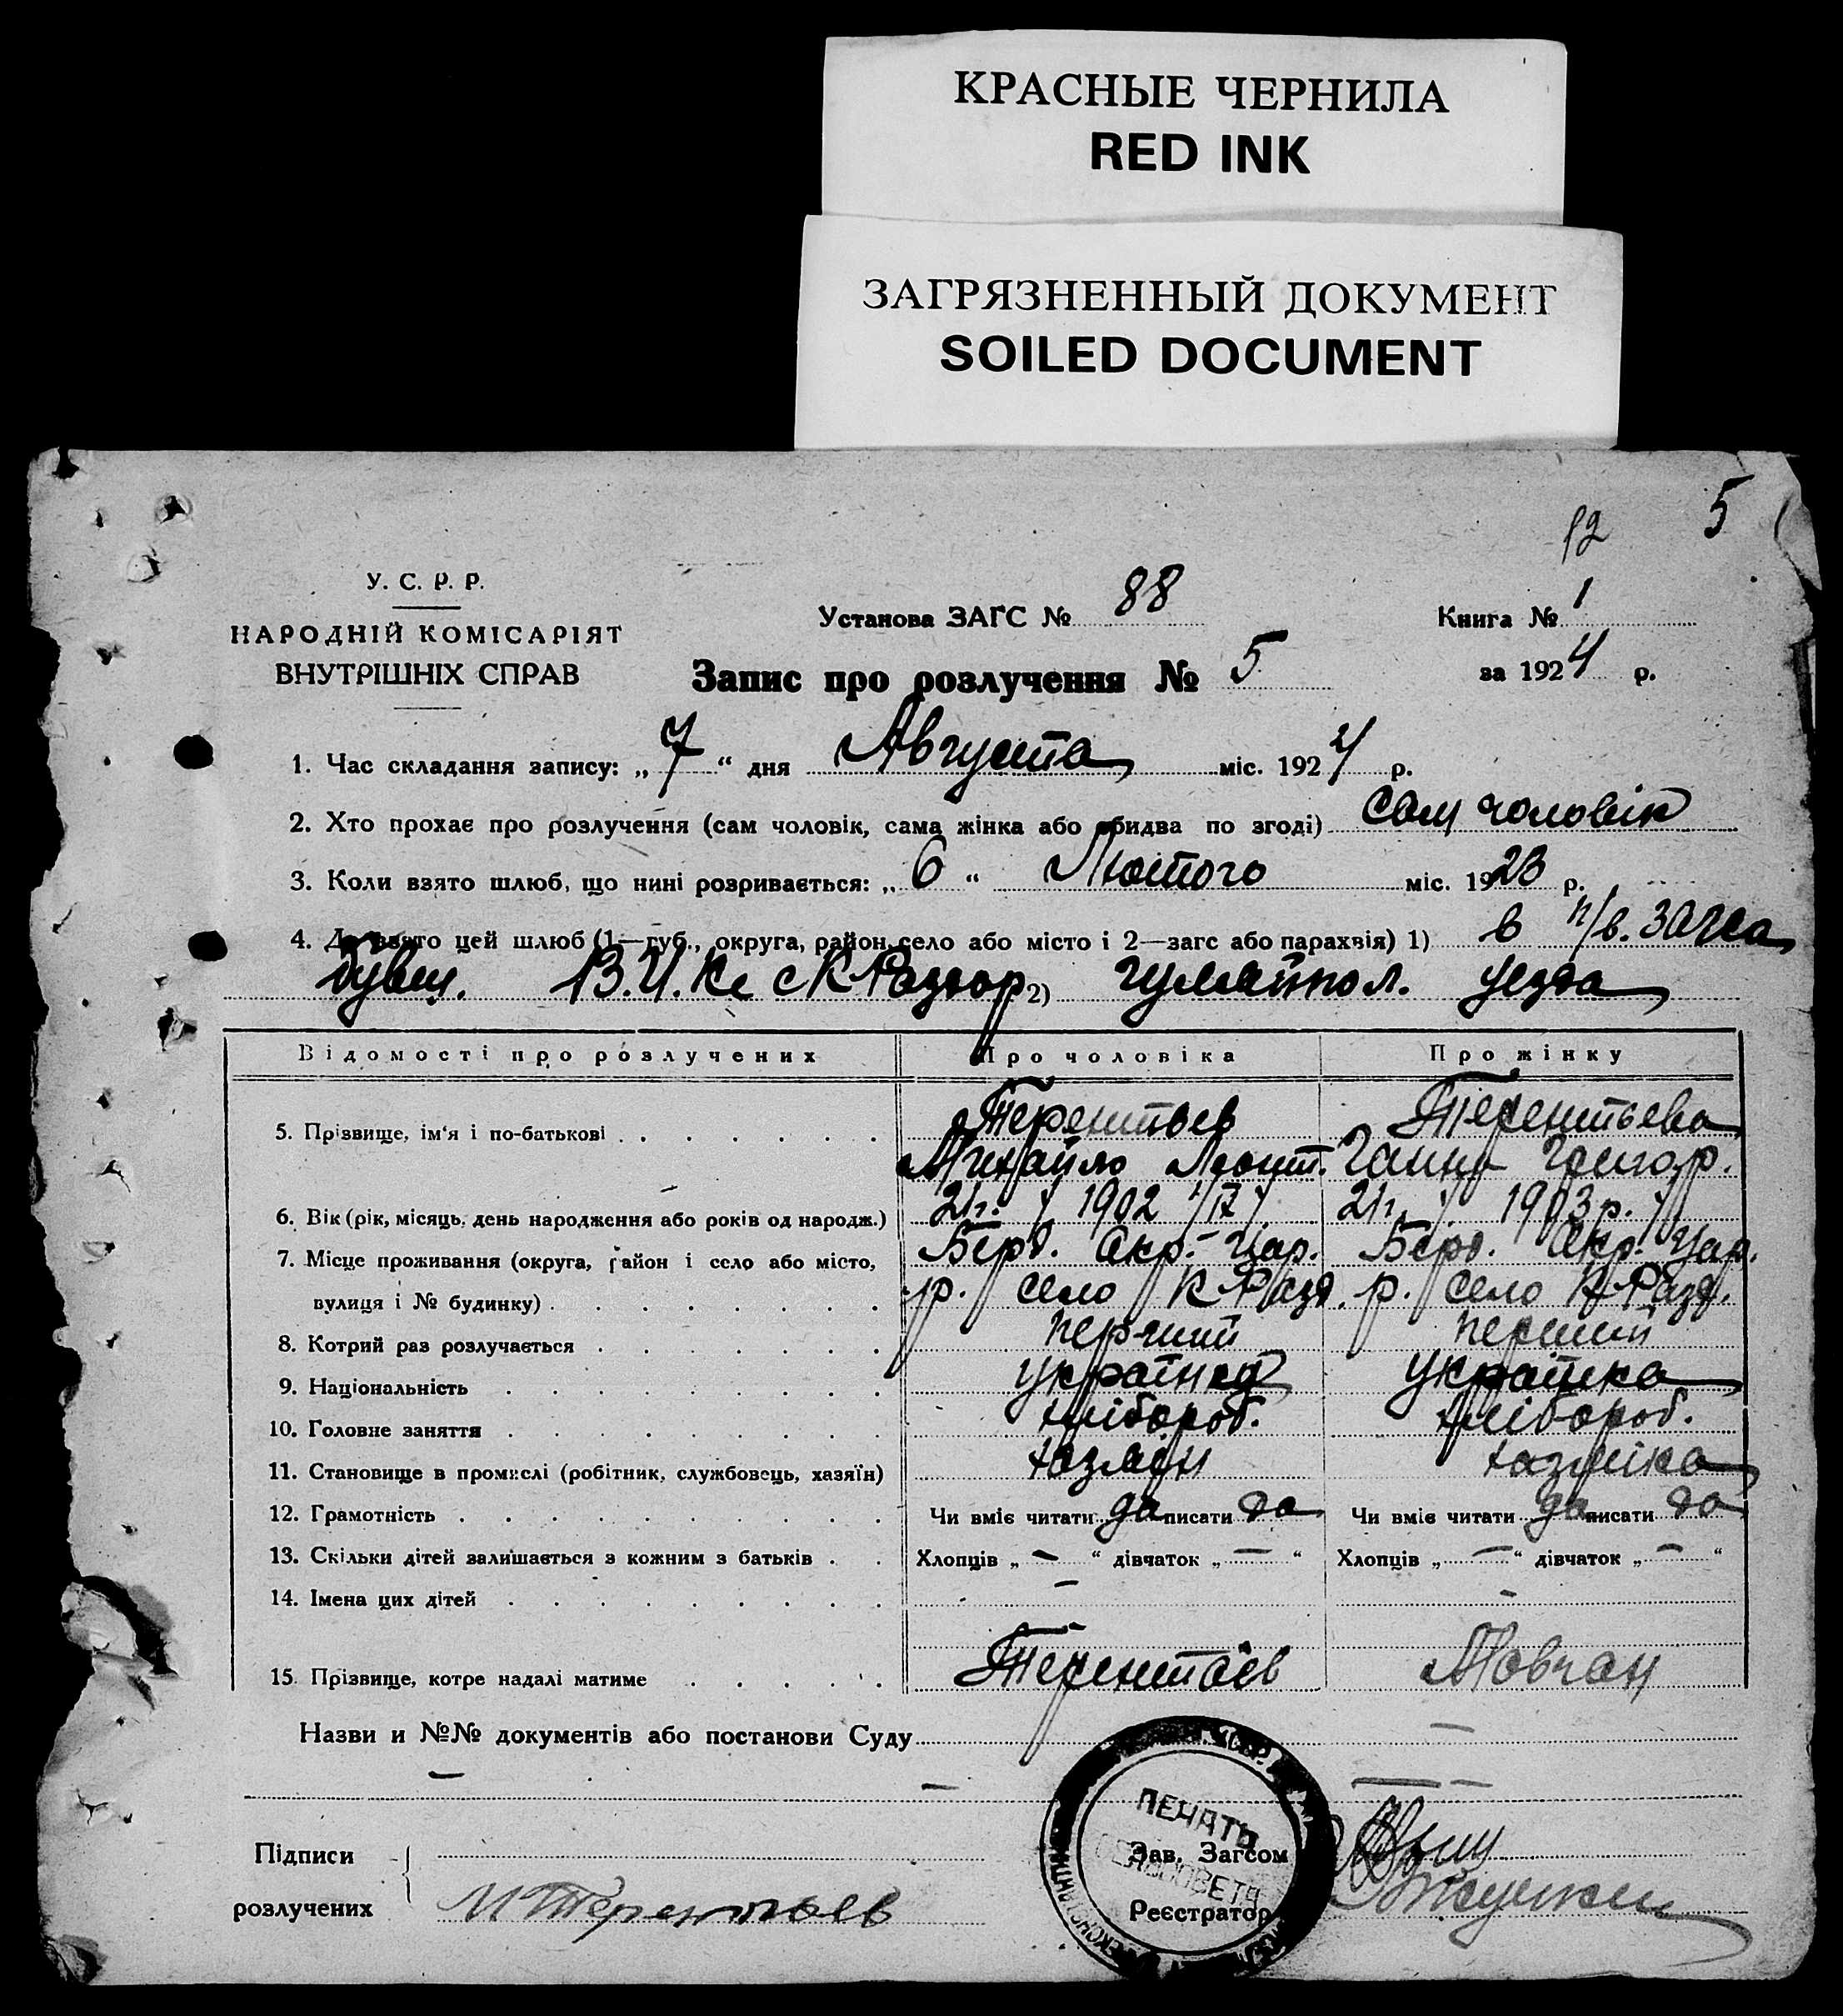 КРАСНЫЕ ЧЕРНИЛА
RED INK
ЗАГРЯЗНЕННЫЙ ДОКУМЕНТ
SOILED DOCUMENT
12 5
У. С. Р. Р.
НАРОДНІЙ КОМІСАРІЯТ
ВНУТРІШНІХ СПРАВ
Установа ЗАГС № 88
Книга № 1
Запис про розлучення № 5
за 1924 р.
1. Час складання запису: „7“ дня Августа міс. 1924 р.
2. Хто прохає про розлучення (сам чоловік, сама жінка або обидва по згоді) Сам чоловік
3. Коли взято шлюб, що нині розривається: „6“ Лютого міс. 1923 р.
4. Де взято цей шлюб (1—губ., округа, район, село або місто і 2—загс або парахвія) 1) в п/в. Загса
бувш. В.И.Ке с К Раздор 2) Гуляйпол. уезда
Відомості про розлучених Про чоловіка Про жінку
5. Прізвище, ім‘я і по-батькові Терентьев Терентьева
Михайло Леонт. Ганна Григор.
6. Вік (рік, місяць, день народження або років од народж.) 21г. 1902 21г. 1903 р.
7. Місце проживання (округа, район і село або місто, Берд. Окр. Цар. Берд. Окр. Цар.
вулиця і № будинку) р. село К Разд. р. село К Разд.
8. Котрий раз розлучається перший перший
9. Національність українец українка
10. Головне заняття хлібороб. хлібороб.
11. Становище в промислі (робітник, службовець, хазяїн) хазяїн хазяїка
12. Грамотність Чи вміє читати да писати да Чи вміє читати да писати да
13. Скільки дітей залишається з кожним з батьків Хлопців „ — “ дівчаток „ — “ Хлопців „ — “ дівчаток „ — “
14. Імена цих дітей — —
15. Прізвище, котре надалі матиме Терентьев Мовчан
Назви и №№ документів або постанови Суду —
— — —
ПЕЧАТЬ
Підписи
розлучених М Терентьев
Зав. Загсом
Реєстратор